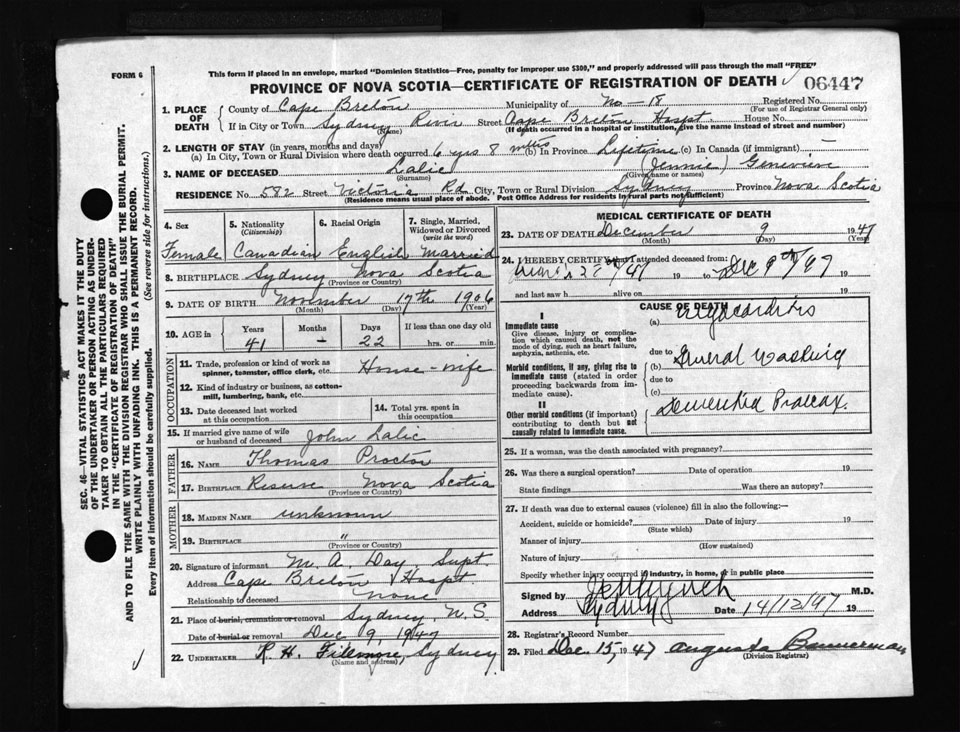 This form if placed in an envelope, marked "Dominion Statistics—Free, penalty for improper use $300," and properly addressed will pass through the mail "FREE"
FORM 6
PROVINCE OF NOVA SCOTIA—CERTIFICATE OF REGISTRATION OF DEATH 06447
SEC. 46—VITAL STATISTICS ACT MAKES IT THE DUTY
OF THE UNDERTAKER OR PERSON ACTING AS UNDER-
TAKER TO OBTAIN ALL THE PARTICULARS REQUIRED
IN THE "CERTIFICATE OF REGISTRATION OF DEATH"
AND TO FILE THE SAME WITH THE DIVISION REGISTRAR WHO SHALL ISSUE THE BURIAL PERMIT.
WRITE PLAINLY WITH UNFADING INK. THIS IS A PERMANENT RECORD.
Every item of information should be carefully supplied. (See reverse side for instructions.)
1. PLACE OF DEATH
County of Cape Breton Municipality of No - 18 Registered No.
(For use of Registrar General only)
If in City or Town Sydney River Street Cape Breton Hospt. House No.
(Name) (If death occurred in a hospital or institution, give the name instead of street and number)
2. LENGTH OF STAY (in years, months and days)
(a) In City, Town or Rural Division where death occurred 6 yrs 8 mths (b) In Province Lifetime (c) In Canada (if immigrant) —
3. NAME OF DECEASED Lalic (Jennie) Genevieve
(Surname) (Given name or names)
RESIDENCE No. 582 Street Victoria Rd City, Town or Rural Division Sydney Province Nova Scotia
(Residence means usual place of abode. Post Office Address for residents in rural parts not sufficient)
4. Sex 5. Nationality (Citizenship) 6. Racial Origin 7. Single, Married, Widowed or Divorced (write the word)
Female Canadian English Married
8. BIRTHPLACE Sydney Nova Scotia
(Province or Country)
9. DATE OF BIRTH November 17th 1906
(Month) (Day) (Year)
10. AGE in Years Months Days If less than one day old
41 - 22 hrs. or min.
OCCUPATION
11. Trade, profession or kind of work as spinner, teamster, office clerk, etc. House-wife
12. Kind of industry or business, as cotton-mill, lumbering, bank, etc.
13. Date deceased last worked at this occupation
14. Total yrs. spent in this occupation
15. If married give name of wife or husband of deceased John Lalic
FATHER
16. NAME Thomas Proctor
17. BIRTHPLACE Reserve Nova Scotia
(Province or Country)
MOTHER
18. MAIDEN NAME unknown
19. BIRTHPLACE "
(Province or Country)
20. Signature of informant M. A. Day Supt.
Address Cape Breton Hospt.
Relationship to deceased None
21. Place of burial, cremation or removal Sydney N. S.
Date of burial or removal Dec 9, 1947
22. UNDERTAKER R. H. Fillmore, Sydney
(Name and address)
MEDICAL CERTIFICATE OF DEATH
23. DATE OF DEATH December 9 1947
(Month) (Day) (Year)
24. I HEREBY CERTIFY that I attended deceased from:
/47 19 to Dec 9th/47 19
and last saw h alive on 19
CAUSE OF DEATH
I
Immediate cause
Give disease, injury or complication which caused death, not the mode of dying, such as heart failure, asphyxia, asthenia, etc.
(a) Myocarditis
due to
Morbid conditions, if any, giving rise to immediate cause (stated in order proceeding backwards from immediate cause).
(b) General Wasting
due to
(c) Dementia Praecox.
II
Other morbid conditions (if important) contributing to death but not causally related to immediate cause.
25. If a woman, was the death associated with pregnancy?
26. Was there a surgical operation? Date of operation 19
State findings Was there an autopsy?
27. If death was due to external causes (violence) fill in also the following:—
Accident, suicide or homicide? Date of injury 19
(State which)
Manner of injury
(How sustained)
Nature of injury
Specify whether injury occurred in industry, in home, or in public place
Signed by Lynch M.D.
Address Sydney Date 14/12/47 19
28. Registrar's Record Number
29. Filed Dec 15, 1947 Augusta Bannerman
(Division Registrar)